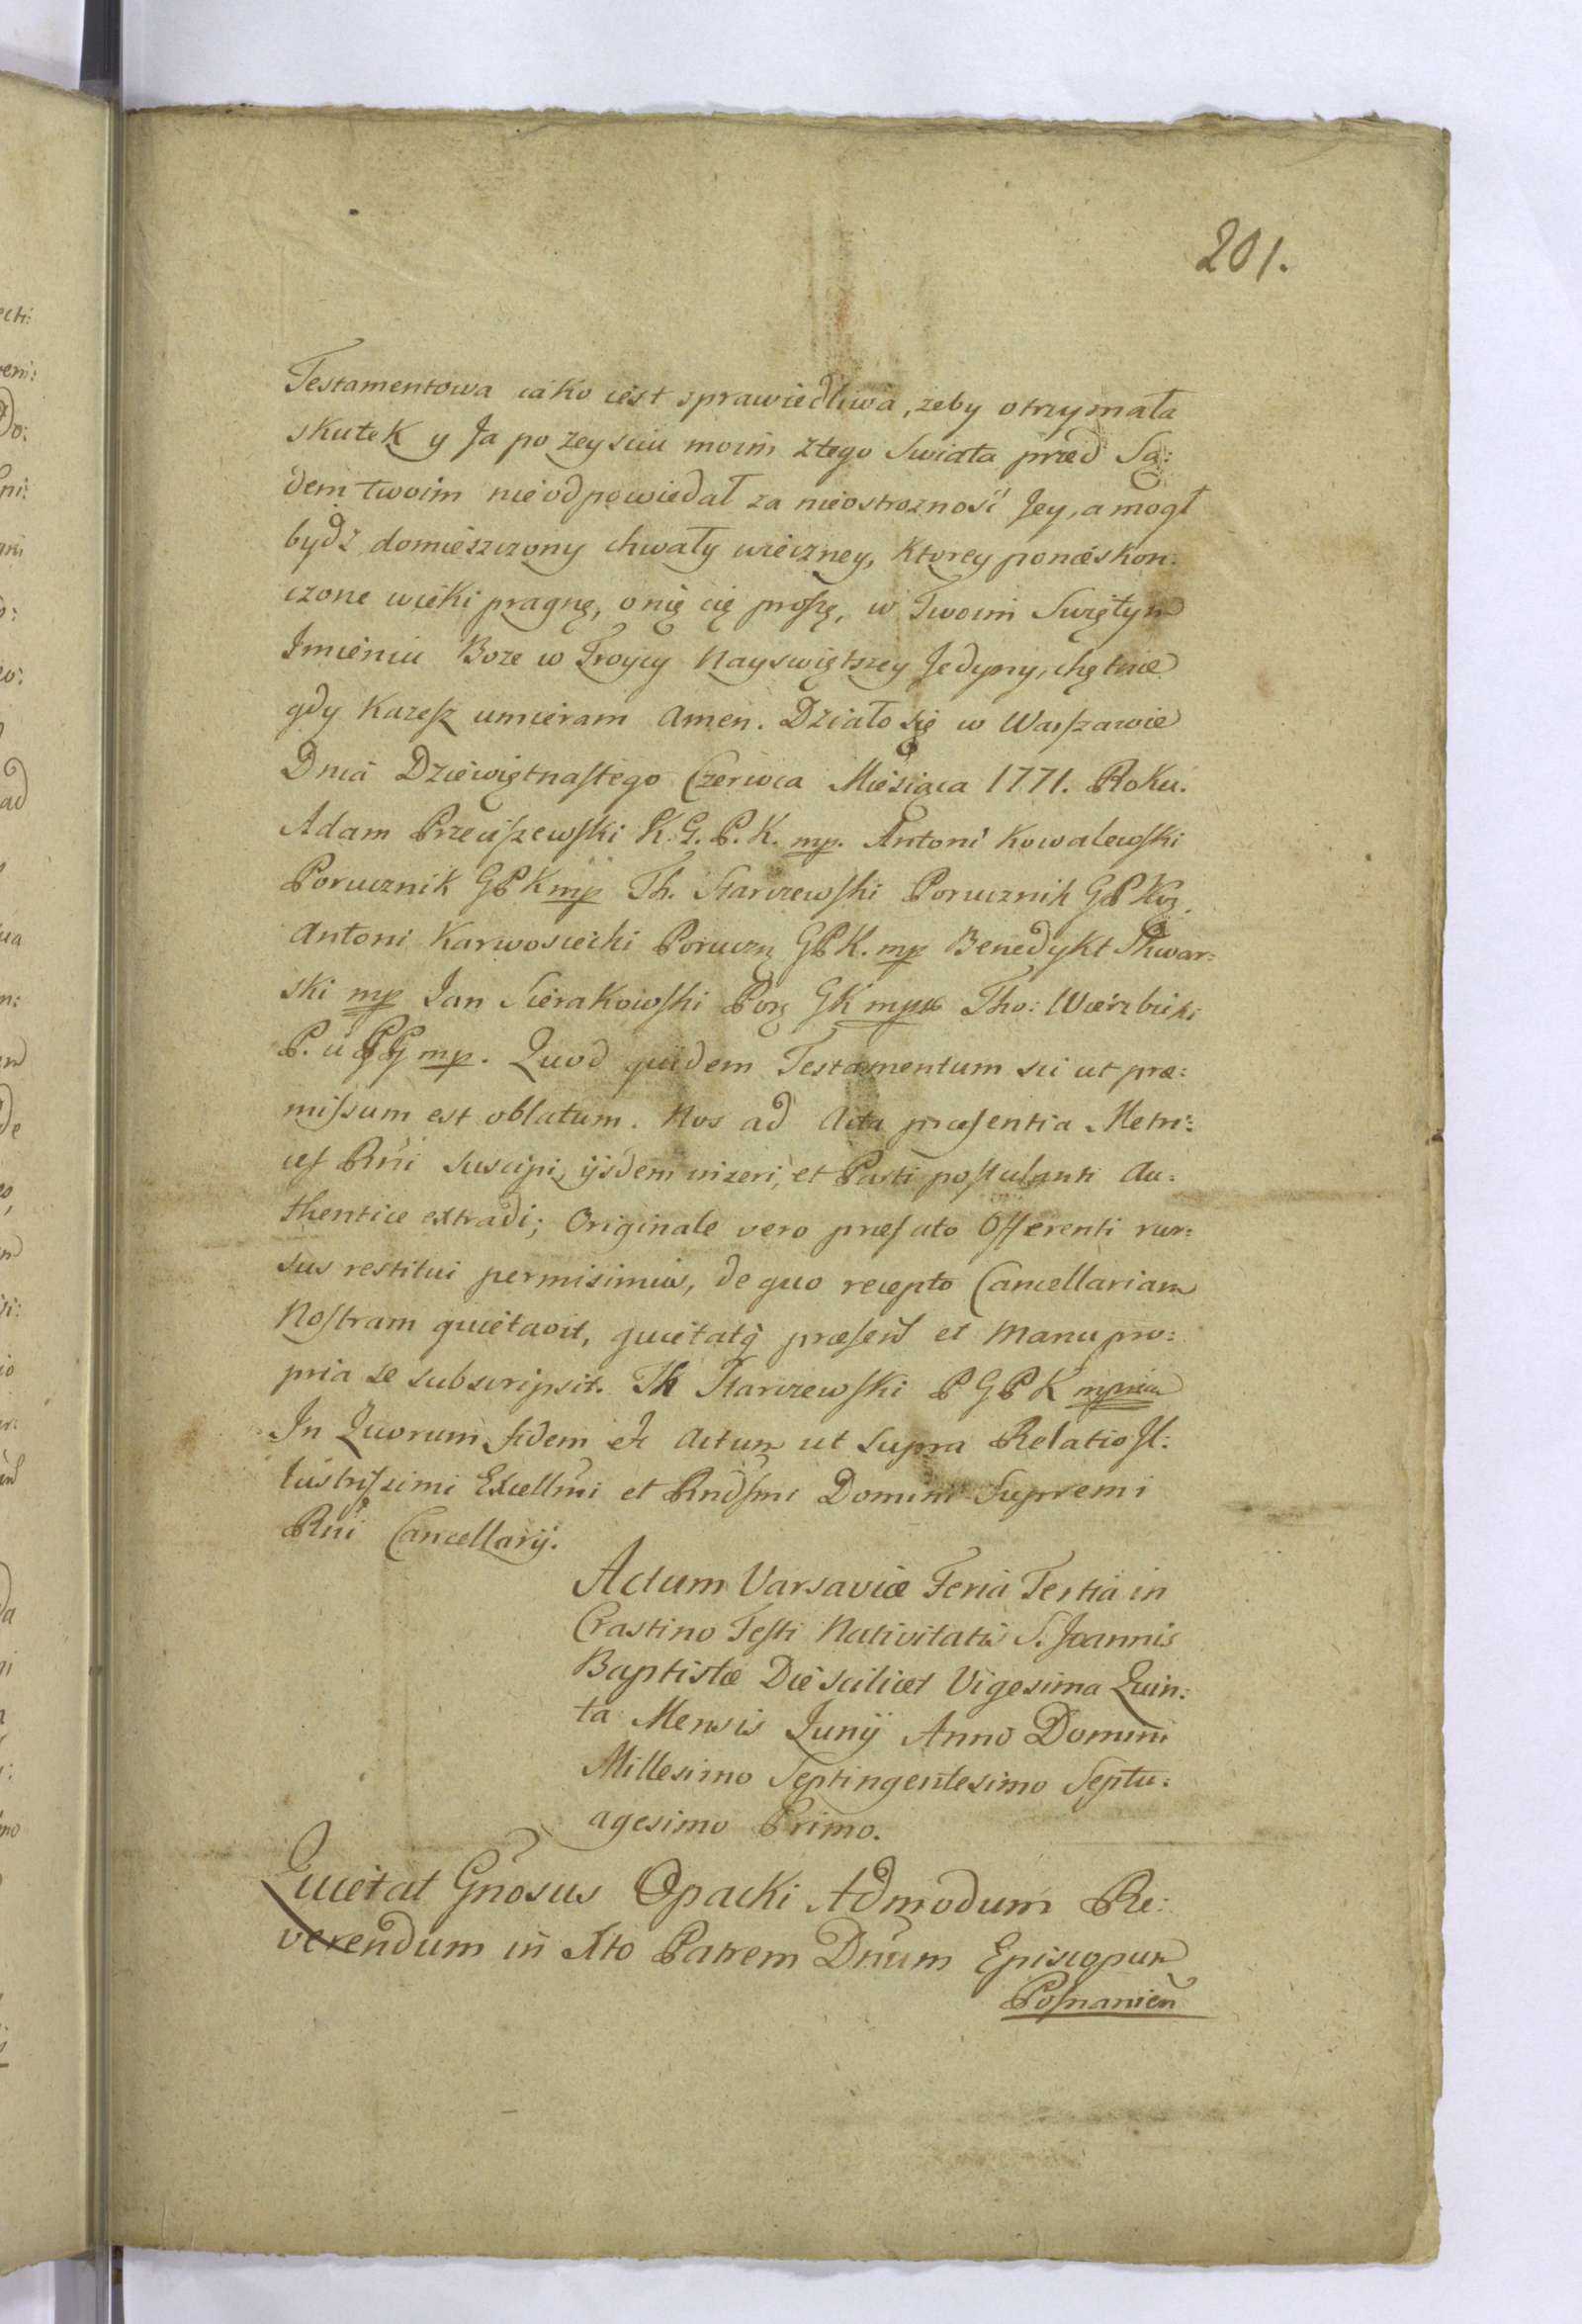 201.
Testamentowa iako iest sprawiedliwa, zeby otrzymała
skutek y Ja po zeysciu moim ztego Swiata przed Są:
dem twoim nieodpowiedał za nieostroznosć Jey, a mogł
bydz domieszczony chwały wieczney, Ktorey ponieskon:
czone wieki pragnę, o nię cię proszę, w Twoim Swiętym
Imieniu Boze w Troycy Nayswiętszey Jedyny, chętnie
gdy Kazesz umieram Amen. Działo się w Warszawie
Dnia Dziewiętnastego Czerwca Miesiąca 1771. Roku.
Adam Przeciszewski K. G. P. K. mp. Antoni Kowalewski
Porucznik GPK mp Th. Starczewski Porucznik GPK
Antoni Karwosiecki Porucz GPK. mp Benedykt
ski mp Jan Sierakowski Por GK mp Tho: Wierzbicki
P. mp. Quod quidem Testamentum sic ut præ:
missum est oblatum. Nos ad Acta præsentia Metri:
ces Rni suscipi, ijsdem inzeri, et Parti postulanti Au:
thentice extradi; Originale vero præfato Offerenti rur:
sus restitui permisimus, de quo recepto Cancellariam
Nostram quietavit, quietatq præsent et Manu pro:
pria se subscripsit. Th Starczewski P G P K mpria
In Quorum fidem et Actum ut supra Relatio Il:
lustrissimi Excellmi et Rndssmi Domini Supremi
Rni Cancellarij.
Actum Varsaviæ Feria Tertia in
Crastino Festi Nativitatis S. Joannis
Baptistæ Die scilicet Vigesima Quin:
ta Mensis Junij Anno Domini
Millesimo Septingentesimo Septu:
agesimo Primo.
Quietat Gnosus Opacki Admodum Re:
verendum in Xto Patrem Dnum Episcopum
Posnanien